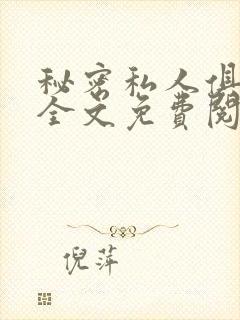 秘密私人俱
全文免費閱
倪萍